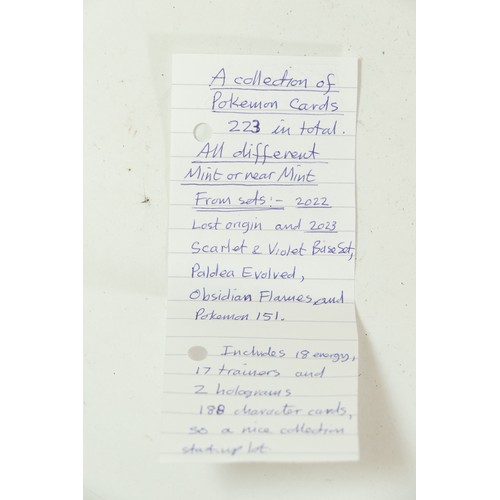 A collection of
Pokemon Cards
223 in total.
All different
Mint or near Mint
From sets:- 2022
Lost origin and 2023
Scarlet & Violet Base Set,
Paldea Evolved,
Obsidian Flames, and
Pokemon 151.
Includes 18 energy,
17 trainers and
2 holograms
188 character cards,
so a nice collection
start up lot.